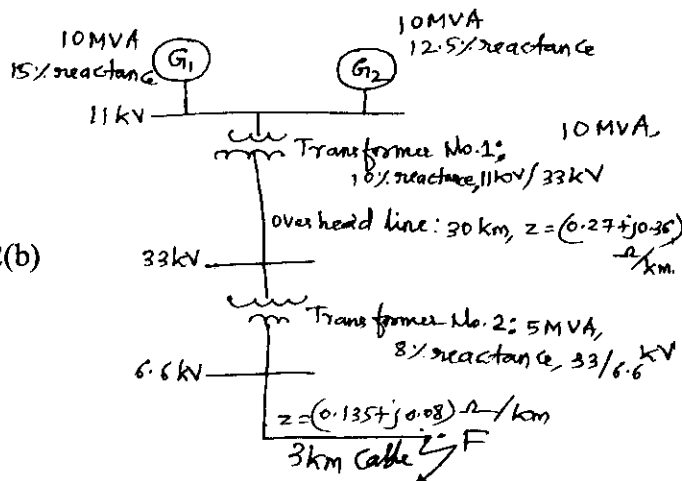 10MVA
15% reactance
G1
10MVA
12.5% reactance
G2
11kV
10MVA,
Transformer No.1:
10% reactance, 11kV/33kV
overhead line: 30 km, z=(0.27+j0.36)
Ω/km.
(b)
33kV
Transformer No.2: 5MVA,
8% reactance, 33/6.6 kV
6.6kV
z=(0.135+j0.08) Ω/km
F
3km Cable